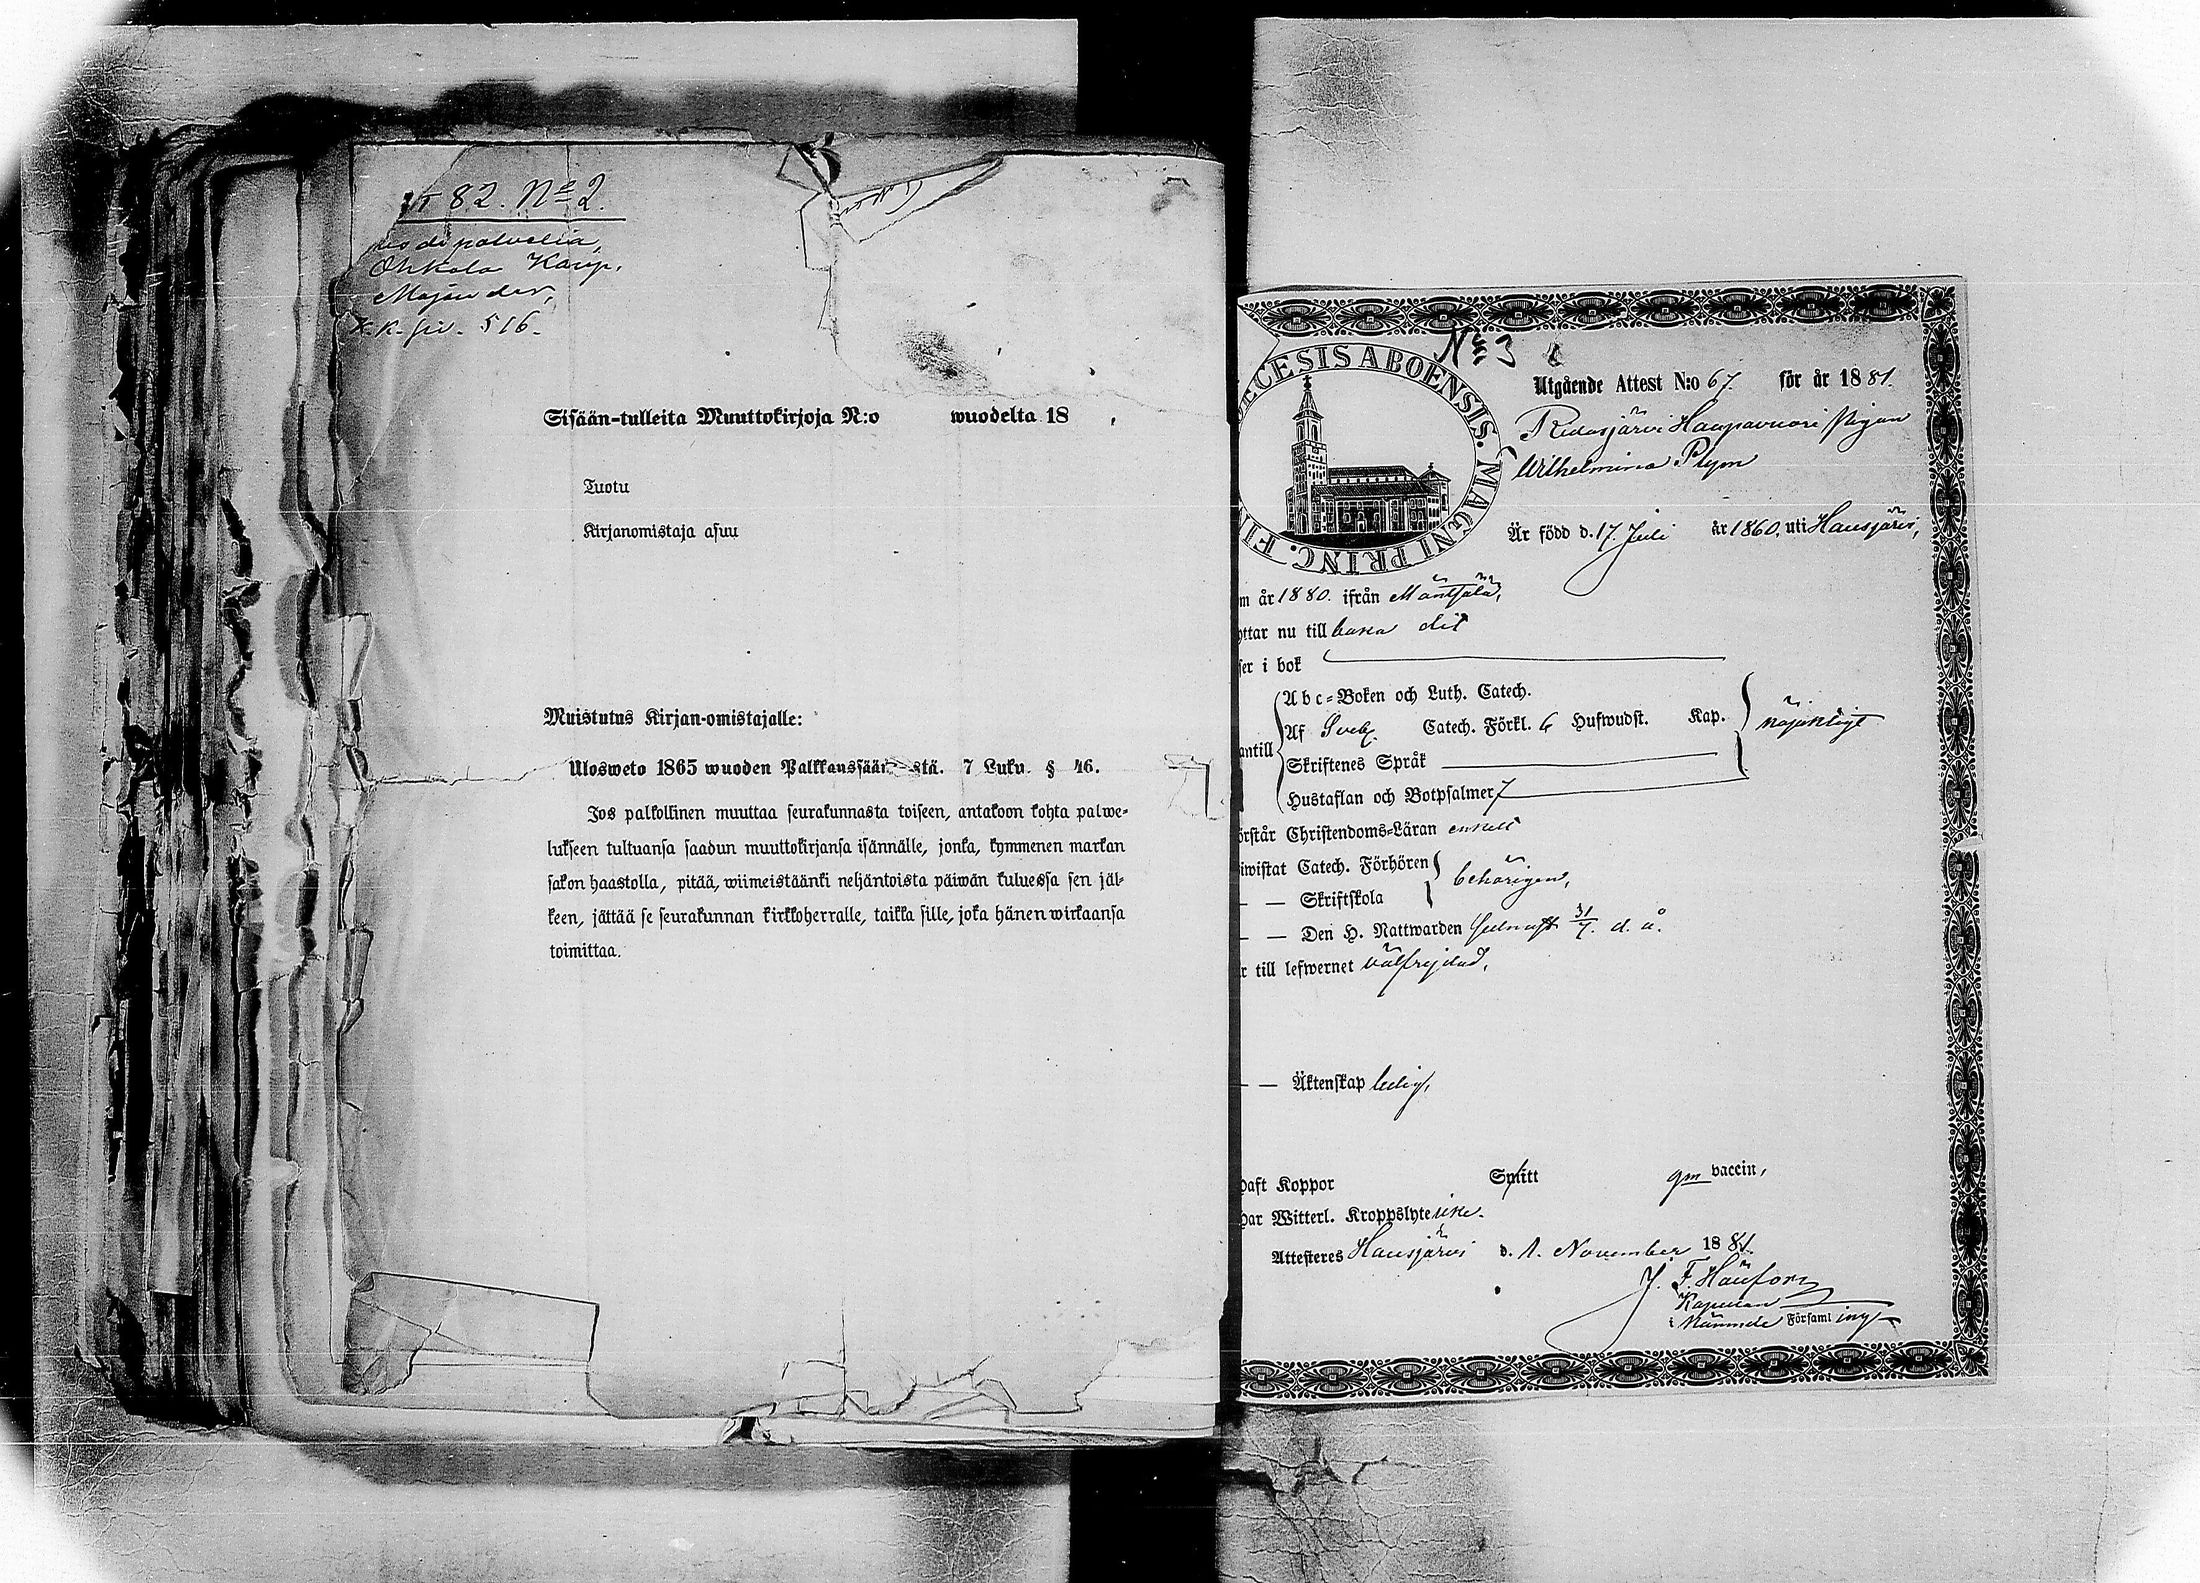 82. No 2.
Ohkola Kaup.
Majander,
K.k. siv. 516.
Sisään-tulleita Muuttokirjoja N:o wuodelta 18 .
Tuotu
Kirjanomistaja asuu
Muistutus Kirjan-omistajalle:
Ulosweto 1865 wuoden Palkkaussään stä. 7 Luku. § 46.
Jos palkollinen muuttaa seurakunnasta toiseen, antakoon kohta palwe-
lukseen tultuansa saadun muuttokirjansa isännälle, jonka, kymmenen markan
sakon haastolla, pitää, wiimeistäänki neljäntoista päiwän kuluessa sen jäl-
keen, jättää se seurakunnan kirkkoherralle, taikka sille, joka hänen wirkaansa
toimittaa.
No 3
CESIS ABOENSIS. MAGNI PRINC. FI
Utgående Attest N:o 67 för år 1881.
Ridasjärvi Haapavuori Pigan
Wilhelmina Plym
Är född d. 17 Juli år 1860, uti Hausjärvi,
m år 1880. ifrån Mäntsälä,
ttar nu till baka dit
ser i bok
Abc-Boken och Luth. Catech.
antill Af Sveb. Catech. Förkl. 6 Hufwudst. Kap. nöjaktigt
Skriftenes Språk
Hustaflan och Botpsalmer 7
örstår Christendoms-Läran enkelt
iwistat Catech. Förhören behörigen,
— — Skriftskola
— — Den H. Nattwarden senast 31/7. d. å.
r till lefwernet välfrejdad,
— — Äktenskap ledig,
haft Koppor Smitt gm vaccin,
har Witterl. Kroppslyte icke.
Attesteres Hausjärvi d. 1. November 1881.
J. F. Häufors
Kapellan
i nämnde Församling